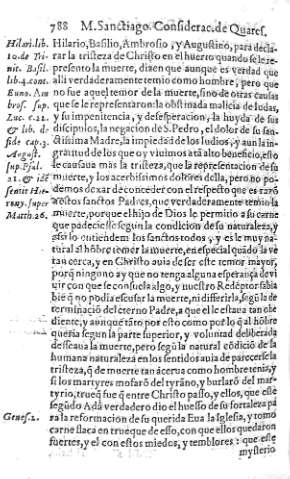 788 M. Sanctiago. Considerac. de Quares.
Hilario, Basilio, Ambrosio, y Augustino, para decla-
rar la tristeza de Christo en el huerto quando se le re-
presento la muerte, dizen que aunque es verdad que
alli verdaderamente temio como hombre, pero que
no fue aquel temor de la muerte, sino de otras causas
que se le representaron: la obstinada malicia de Iudas,
y su impenitencia, y desesperacion, la huyda de sus
discipulos, la negacion de S. Pedro, el dolor de su san-
ctissima Madre, la impiedad de los Iudios, y aun la in-
gratitud de los que oy viuimos a tã alto beneficio, esto
le causaua mas la tristeza, que la representacion de su
muerte, y los acerbissimos dolores della, pero no po-
demos dexar de conceder con el respecto que es razõ
a estos sanctos Padres, que verdaderamente temio la
muerte, porque el hijo de Dios le permitio a su carne
que padeciesse segun la condicion de su naturaleza, y
assi lo entienden los sanctos todos, y es le muy na-
tural al hõbre temer la muerte, en especial quãdo la ve
tan cerca, y en Christo auia de ser este temor mayor,
porq̃ ninguno ay que no tenga alguna esperança de vi
uir con que se consuela algo, y nuestro Redẽptor sabia
bie q̃ no podia escusar la muerte, ni differirla, segũ la de
terminaciõ del eterno Padre, a que el le estaua tan obe
diente, y aunque tãto por esto como por lo q̃ al hõbre
queria segun la parte superior, y voluntad deliberada
desseaua la muerte, pero segũ la natural cõdiciõ de la
humana naturaleza en los sentidos auia de parecerse la
tristeza, q̃ de muerte tan acerua como hombre tenia, y
si los martyres mofarõ del tyrãno, y burlarõ del mar-
tyrio, trueq̃ fue q̃ entre Christo passo, y ellos, que este
segũdo Adã verdadero dio el huesso de su fortaleza pa
ra la reformacion de su querida Eua la Iglesia, y tomo
carne flaca en trueque de esso, con que ellos quedaron
fuertes, y el con estos miedos, y temblores: que este
mysterio
Hilari. lib.
10. de Tri
nit. Basil.
lib. 4. cont.
Euno. Am
bros. sup.
Luc. c. 22.
& lib. de
fide cap. 3.
August.
sup. Psal.
21. & idē
sentit Hie-
rony. super
Matth. 26.
Genes. 2.